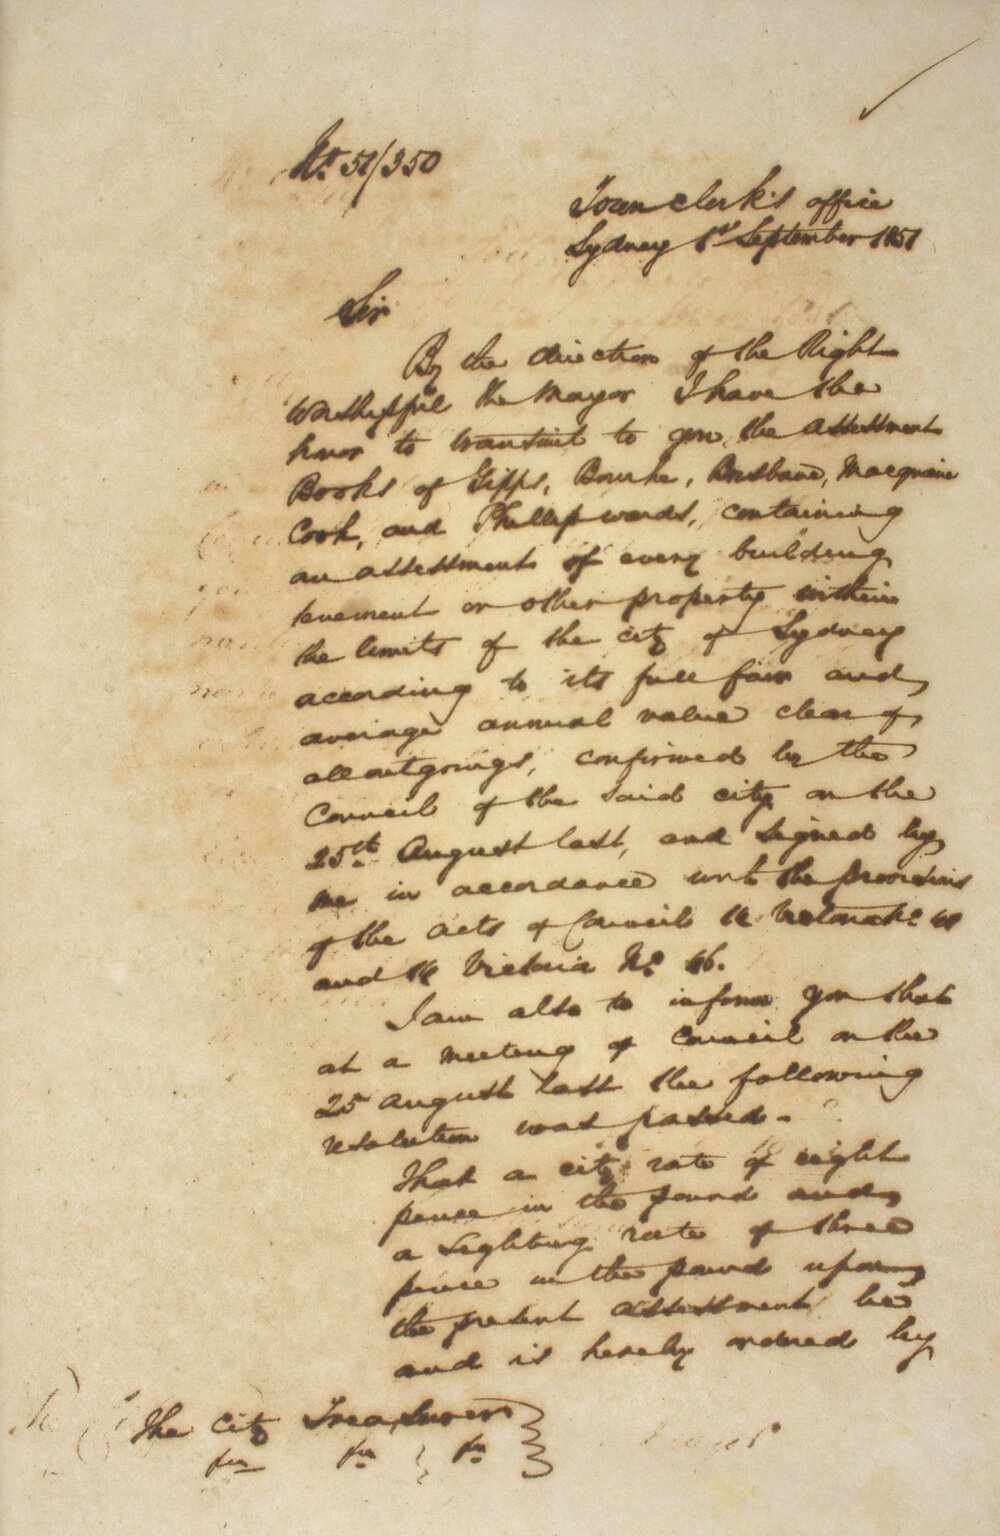 No. 51/350
Town Clerk's office
Sydney 1st September 1851
Sir
By the direction of the Right
Worshipful the Mayor I have the
honor to transmit to you the assessment
Books of Gipps, Bourke, Brisbane, Macquarie
Cook, and Phillip wards, containing
an assessment of every building
tenement or other property within
the limits of the city of Sydney
according to its full fair and
average annual value clear of
all outgoings, confirmed by the
Council of the said city on the
25th August last, and signed by
me in accordance with the provisions
of the acts of Council 14 Victoria No
and 14 Victoria No 46.
I am also to inform you that
at a meeting of Council on the
25 August last the following
resolution was passed -
That a city rate of eight
pence in the pound and
a Lighting rate of three
pence in the pound upon
the present assessment be
and is hereby ordered by
The City Treasurer